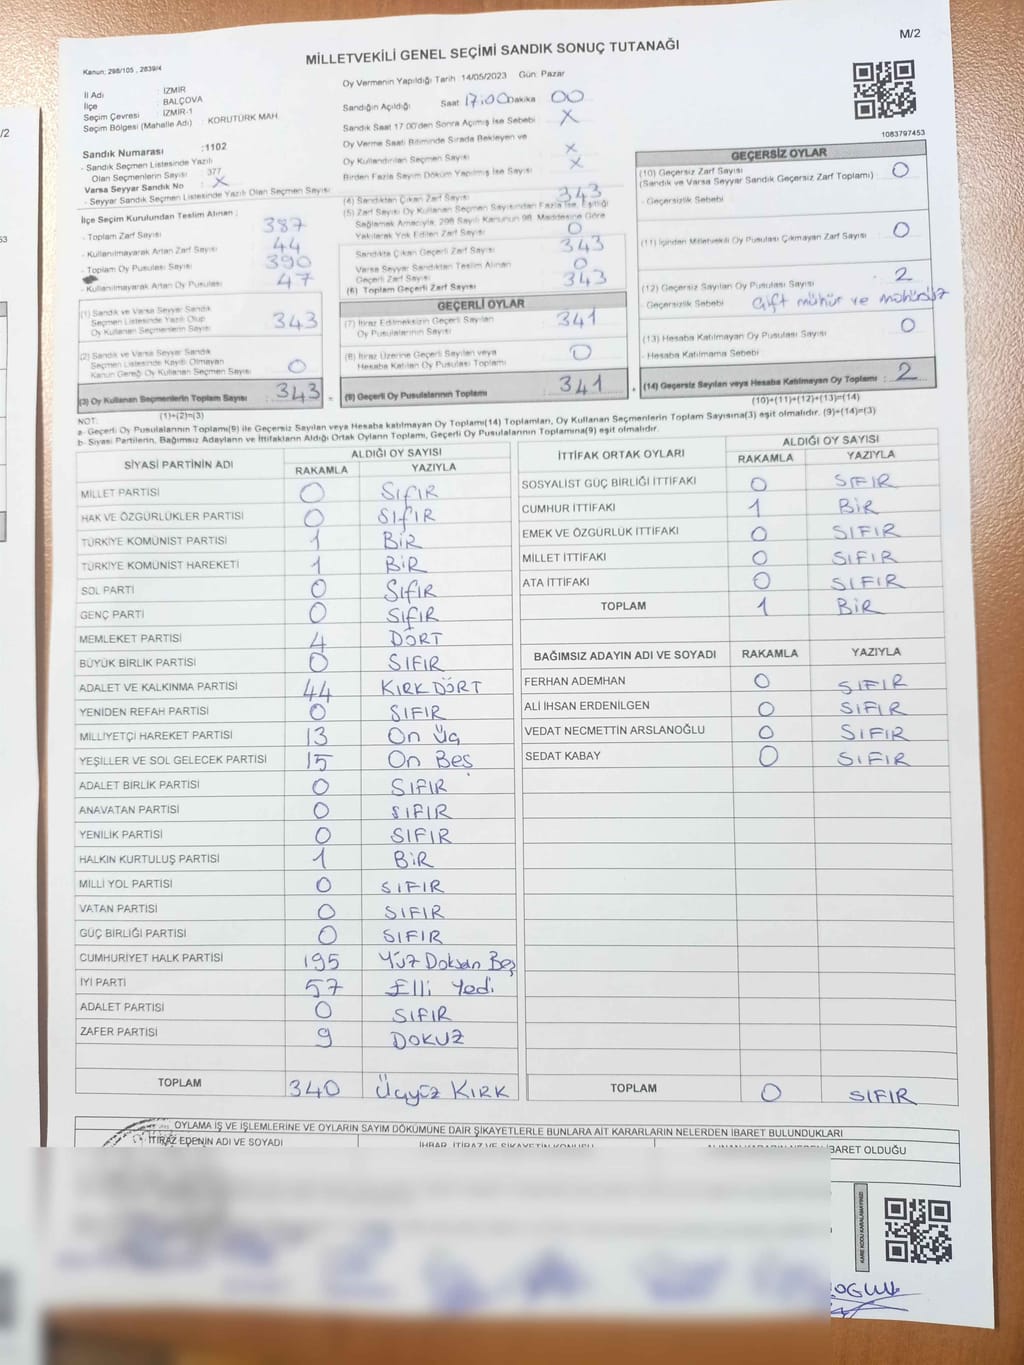 M/2
MİLLETVEKİLİ GENEL SEÇİMİ SANDIK SONUÇ TUTANAĞI
Kanun: 298/105 , 2839/4
İl Adı : İZMİR
İlçe : BALÇOVA
Seçim Çevresi : İZMİR-1
Seçim Bölgesi (Mahalle Adı) : KORUTÜRK MAH.
Sandık Numarası :1102
- Sandık Seçmen Listesinde Yazılı
Olan Seçmenlerin Sayısı : 377
Varsa Seyyar Sandık No : X
- Seyyar Sandık Seçmen Listesinde Yazılı Olan Seçmen Sayısı :
İlçe Seçim Kurulundan Teslim Alınan ;
- Toplam Zarf Sayısı : 387
- Kullanılmayarak Artan Zarf Sayısı : 44
- Toplam Oy Pusulası Sayısı : 390
- Kullanılmayarak Artan Oy Pusulası : 47
(1) Sandık ve Varsa Seyyar Sandık
Seçmen Listesinde Yazılı Olup
Oy Kullanan Seçmenlerin Sayısı : 343
(2) Sandık ve Varsa Seyyar Sandık
Seçmen Listesinde Kayıtlı Olmayan
Kanun Gereği Oy Kullanan Seçmen Sayısı : 0
(3) Oy Kullanan Seçmenlerin Toplam Sayısı : 343
(1)+(2)=(3)
Oy Vermenin Yapıldığı Tarih :14/05/2023 Gün: Pazar
Sandığın Açıldığı Saat 17:00 Dakika 00
Sandık Saat 17:00'den Sonra Açılmış İse Sebebi X
Oy Verme Saati Bitiminde Sırada Bekleyen ve
Oy Kullandırılan Seçmen Sayısı X
Birden Fazla Sayım Döküm Yapılmış İse Sayısı : X
(4) Sandıktan Çıkan Zarf Sayısı : 343
(5) Zarf Sayısı Oy Kullanan Seçmen Sayısından Fazla İse, Eşitliği
Sağlamak Amacıyla, 298 Sayılı Kanunun 98. Maddesine Göre
Yakılarak Yok Edilen Zarf Sayısı : 0
Sandıkta Çıkan Geçerli Zarf Sayısı : 343
Varsa Seyyar Sandıktan Teslim Alınan
Geçerli Zarf Sayısı : 0
(6) Toplam Geçerli Zarf Sayısı : 343
GEÇERLİ OYLAR
(7) İtiraz Edilmeksizin Geçerli Sayılan
Oy Pusulalarının Sayısı : 341
(8) İtiraz Üzerine Geçerli Sayılan veya
Hesaba Katılan Oy Pusulaları Toplamı : 0
(9) Geçerli Oy Pusulalarının Toplamı : 341
1083797453
GEÇERSİZ OYLAR
(10) Geçersiz Zarf Sayısı : 0
(Sandık ve Varsa Seyyar Sandık Geçersiz Zarf Toplamı)
- Geçersizlik Sebebi
(11) İçinden Milletvekili Oy Pusulası Çıkmayan Zarf Sayısı : 0
(12) Geçersiz Sayılan Oy Pusulası Sayısı : 2
Geçersizlik Sebebi Çift mühür ve mühürsüz
(13) Hesaba Katılmayan Oy Pusulası Sayısı : 0
Hesaba Katılmama Sebebi
(14) Geçersiz Sayılan veya Hesaba Katılmayan Oy Toplamı : 2
(10)+(11)+(12)+(13)=(14)
NOT:
a- Geçerli Oy Pusulalarının Toplamı(9) ile Geçersiz Sayılan veya Hesaba katılmayan Oy Toplamı(14) Toplamları, Oy Kullanan Seçmenlerin Toplam Sayısına(3) eşit olmalıdır. (9)+(14)=(3)
b- Siyasi Partilerin, Bağımsız Adayların ve İttifakların Aldığı Ortak Oyların Toplamı, Geçerli Oy Pusulalarının Toplamına(9) eşit olmalıdır.
SİYASİ PARTİNİN ADI ALDIĞI OY SAYISI
RAKAMLA YAZIYLA
MİLLET PARTİSİ 0 SIfIR
HAK VE ÖZGÜRLÜKLER PARTİSİ 0 SIfIR
TÜRKİYE KOMÜNİST PARTİSİ 1 BİR
TÜRKİYE KOMÜNİST HAREKETİ 1 BİR
SOL PARTİ 0 SIfIR
GENÇ PARTİ 0 SIfIR
MEMLEKET PARTİSİ 4 DÖRT
BÜYÜK BİRLİK PARTİSİ 0 SIFIR
ADALET VE KALKINMA PARTİSİ 44 KIRK DÖRT
YENİDEN REFAH PARTİSİ 0 SIFIR
MİLLİYETÇİ HAREKET PARTİSİ 13 On Üç
YEŞİLLER VE SOL GELECEK PARTİSİ 15 On Beş
ADALET BİRLİK PARTİSİ 0 SIFIR
ANAVATAN PARTİSİ 0 SIFIR
YENİLİK PARTİSİ 0 SIFIR
HALKIN KURTULUŞ PARTİSİ 1 BİR
MİLLİ YOL PARTİSİ 0 SIFIR
VATAN PARTİSİ 0 SIFIR
GÜÇ BİRLİĞİ PARTİSİ 0 SIFIR
CUMHURİYET HALK PARTİSİ 195 Yüz Doksan Beş
İYİ PARTİ 57 Elli Yedi
ADALET PARTİSİ 0 SIFIR
ZAFER PARTİSİ 9 DOKUZ
TOPLAM 340 Üçyüz KIRK
İTTİFAK ORTAK OYLARI ALDIĞI OY SAYISI
RAKAMLA YAZIYLA
SOSYALİST GÜÇ BİRLİĞİ İTTİFAKI 0 SIFIR
CUMHUR İTTİFAKI 1 BİR
EMEK VE ÖZGÜRLÜK İTTİFAKI 0 SIFIR
MİLLET İTTİFAKI 0 SIFIR
ATA İTTİFAKI 0 SIFIR
TOPLAM 1 BİR
BAĞIMSIZ ADAYIN ADI VE SOYADI RAKAMLA YAZIYLA
FERHAN ADEMHAN 0 SIFIR
ALİ İHSAN ERDENİLGEN 0 SIFIR
VEDAT NECMETTİN ARSLANOĞLU 0 SIFIR
SEDAT KABAY 0 SIFIR
TOPLAM 0 SIFIR
OYLAMA İŞ VE İŞLEMLERİNE VE OYLARIN SAYIM DÖKÜMÜNE DAİR ŞİKAYETLERLE BUNLARA AİT KARARLARIN NELERDEN İBARET BULUNDUKLARI
İTİRAZ EDENİN ADI VE SOYADI İHBAR, İTİRAZ VE ŞİKAYETİN KONUSU İBARET OLDUĞU
KARE KODU KARALAMAYINIZ!